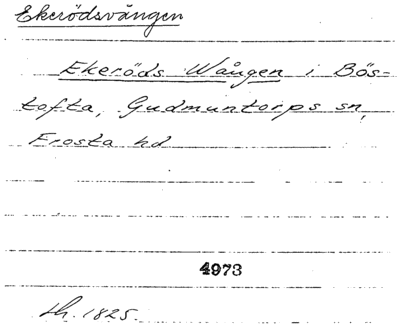 Ekerödsvången
Ekeröds Wången i Bös-
tofta, Gudmuntorps sn,
Frosta hd
4973
Lh. 1825